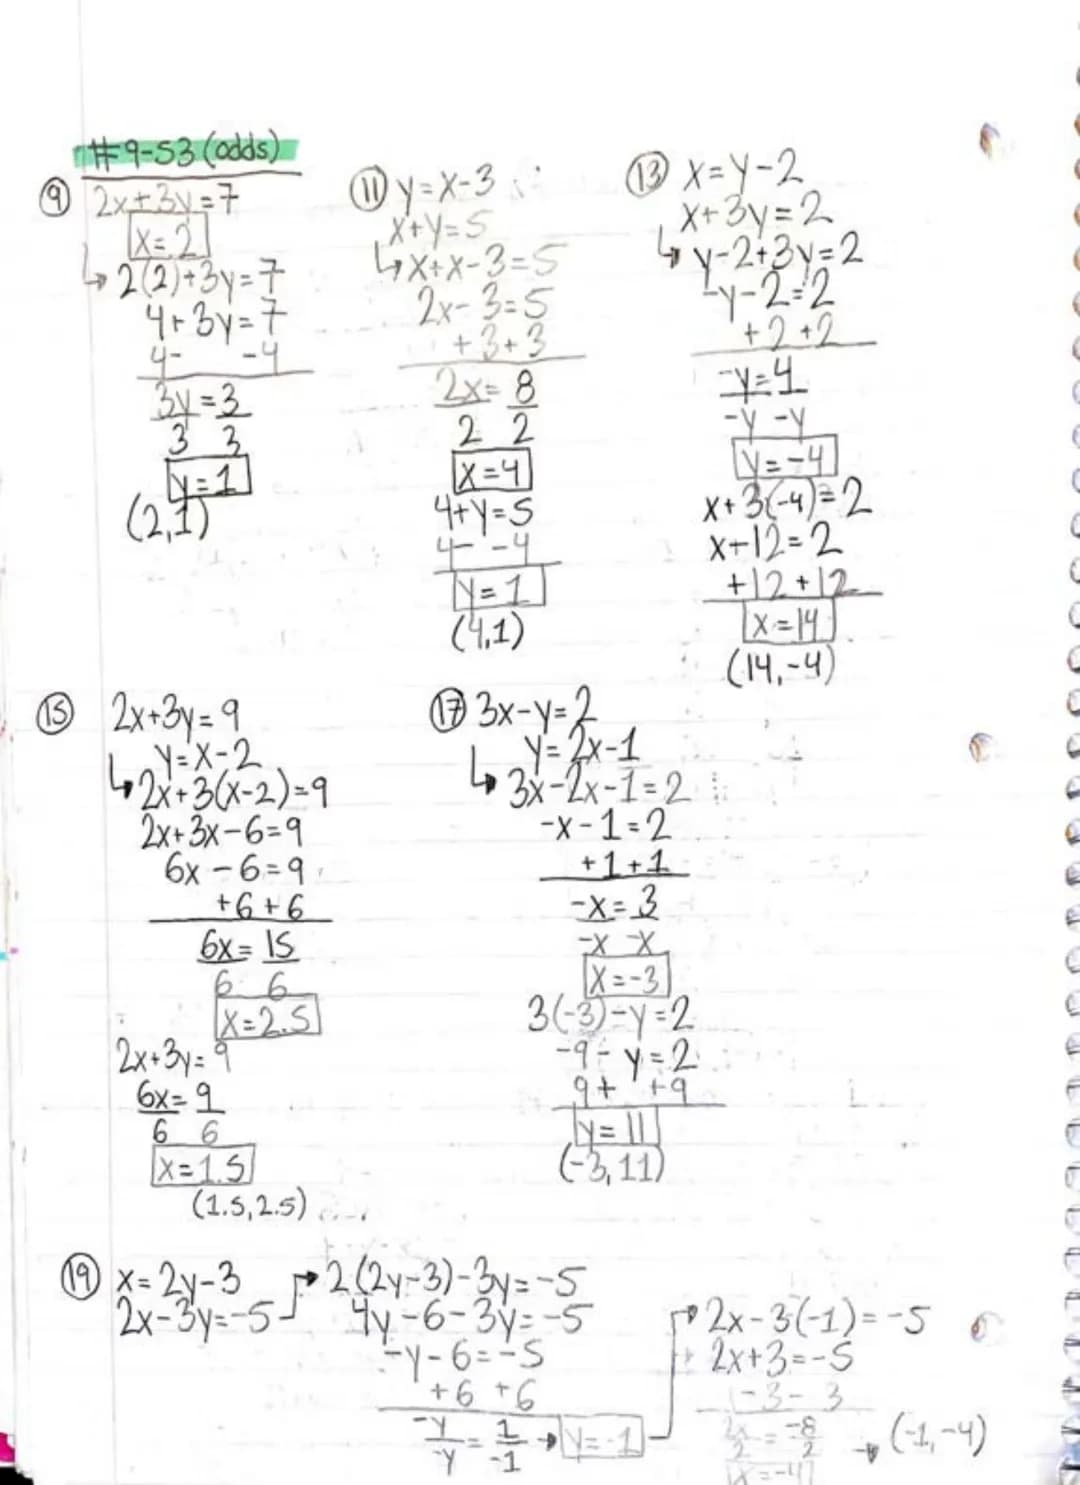 #9-53 (odds)
⑨ 2x+3y=7
x=2
↳ 2(2)+3y=7
4+3y=7
4- -4
3y=3
3 3
y=1
(2,1)
⑪ y=x-3
x+y=5
↳ x+x-3=5
2x-3=5
+3+3
2x=8
2 2
x=4
4+y=5
4- -4
y=1
(4,1)
⑬ x=y-2
x+3y=2
↳ y-2+3y=2
-y-2=2
+2 +2
-y=4
-y -y
y=-4
x+3(-4)=2
x-12=2
+12+12
x=14
(14,-4)
⑮ 2x+3y=9
y=x-2
↳ 2x+3(x-2)=9
2x+3x-6=9
6x-6=9
+6+6
6x=15
6 6
x=2.5
2x+3y=9
6x=9
6 6
x=1.5
(1.5,2.5)
⑰ 3x-y=2
y=2x-1
↳ 3x-2x-1=2
-x-1=2
+1+1
-x=3
-x -x
x=-3
3(-3)-y=2
-9-y=2
9+ +9
y=11
(-3,11)
⑲ x=2y-3
2x-3y=-5
→ 2(2y-3)-3y=-5
4y-6-3y=-5
-y-6=-5
+6 +6
-y/-y = 1/-1 → y=-1
→ 2x-3(-1)=-5
2x+3=-5
-3- 3
2x/2 = -8/2
x=-4
→ (-1,-4)